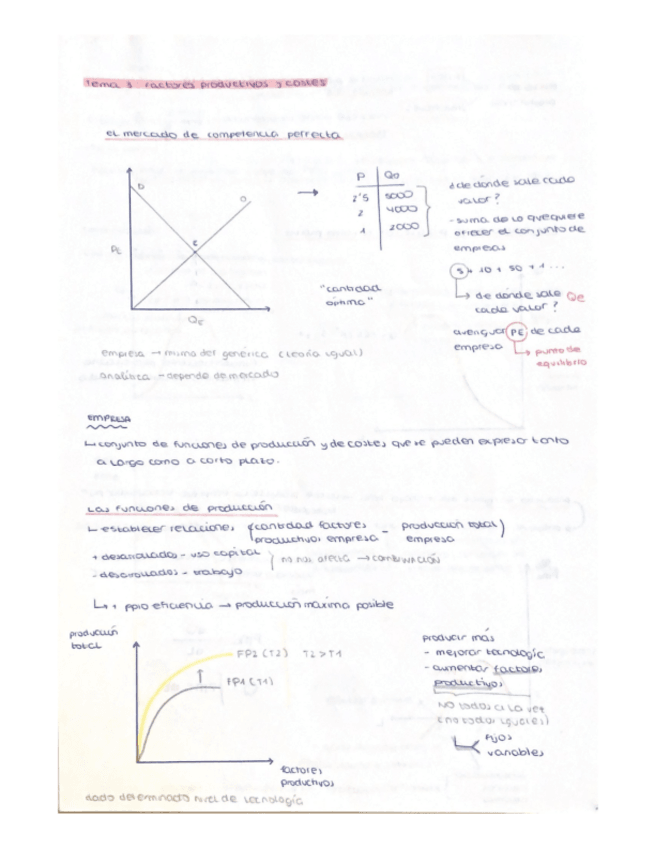 Tema 3 Factores productivos y costes
el mercado de competencia perfecta
D
O
E
PE
QE
P Qo
2'5 5000
2 4000
1 2000
"cantidad
óptima"
¿de dónde sale cada
valor?
- suma de lo que quiere
ofrecer el conjunto de
empresas
5 + 10 + 50 + 1 ...
de dónde sale Qe
cada valor?
averiguar PE de cada
empresa
punto de
equilibrio
empresa → genérica (teoría igual)
analítica - depende de mercado
EMPRESA
conjunto de funciones de producción y de costes, que se pueden expresar tanto
a largo como a corto plazo.
Las funciones de producción
establecer relaciones (cantidad factores - producción total)
productivos empresa empresa
+ desarrollados - uso capital
- desarrollados - trabajo
no nos afecta → combinación
ppio eficiencia → producción máxima posible
producción
total
FP2 (T2) T2 > T1
FP1 (T1)
factores
productivos
producir más
- mejorar tecnología
- aumentar factores
productivos
NO todos a la vez
(no todos iguales)
fijos
variables
dado determinado nivel de tecnología